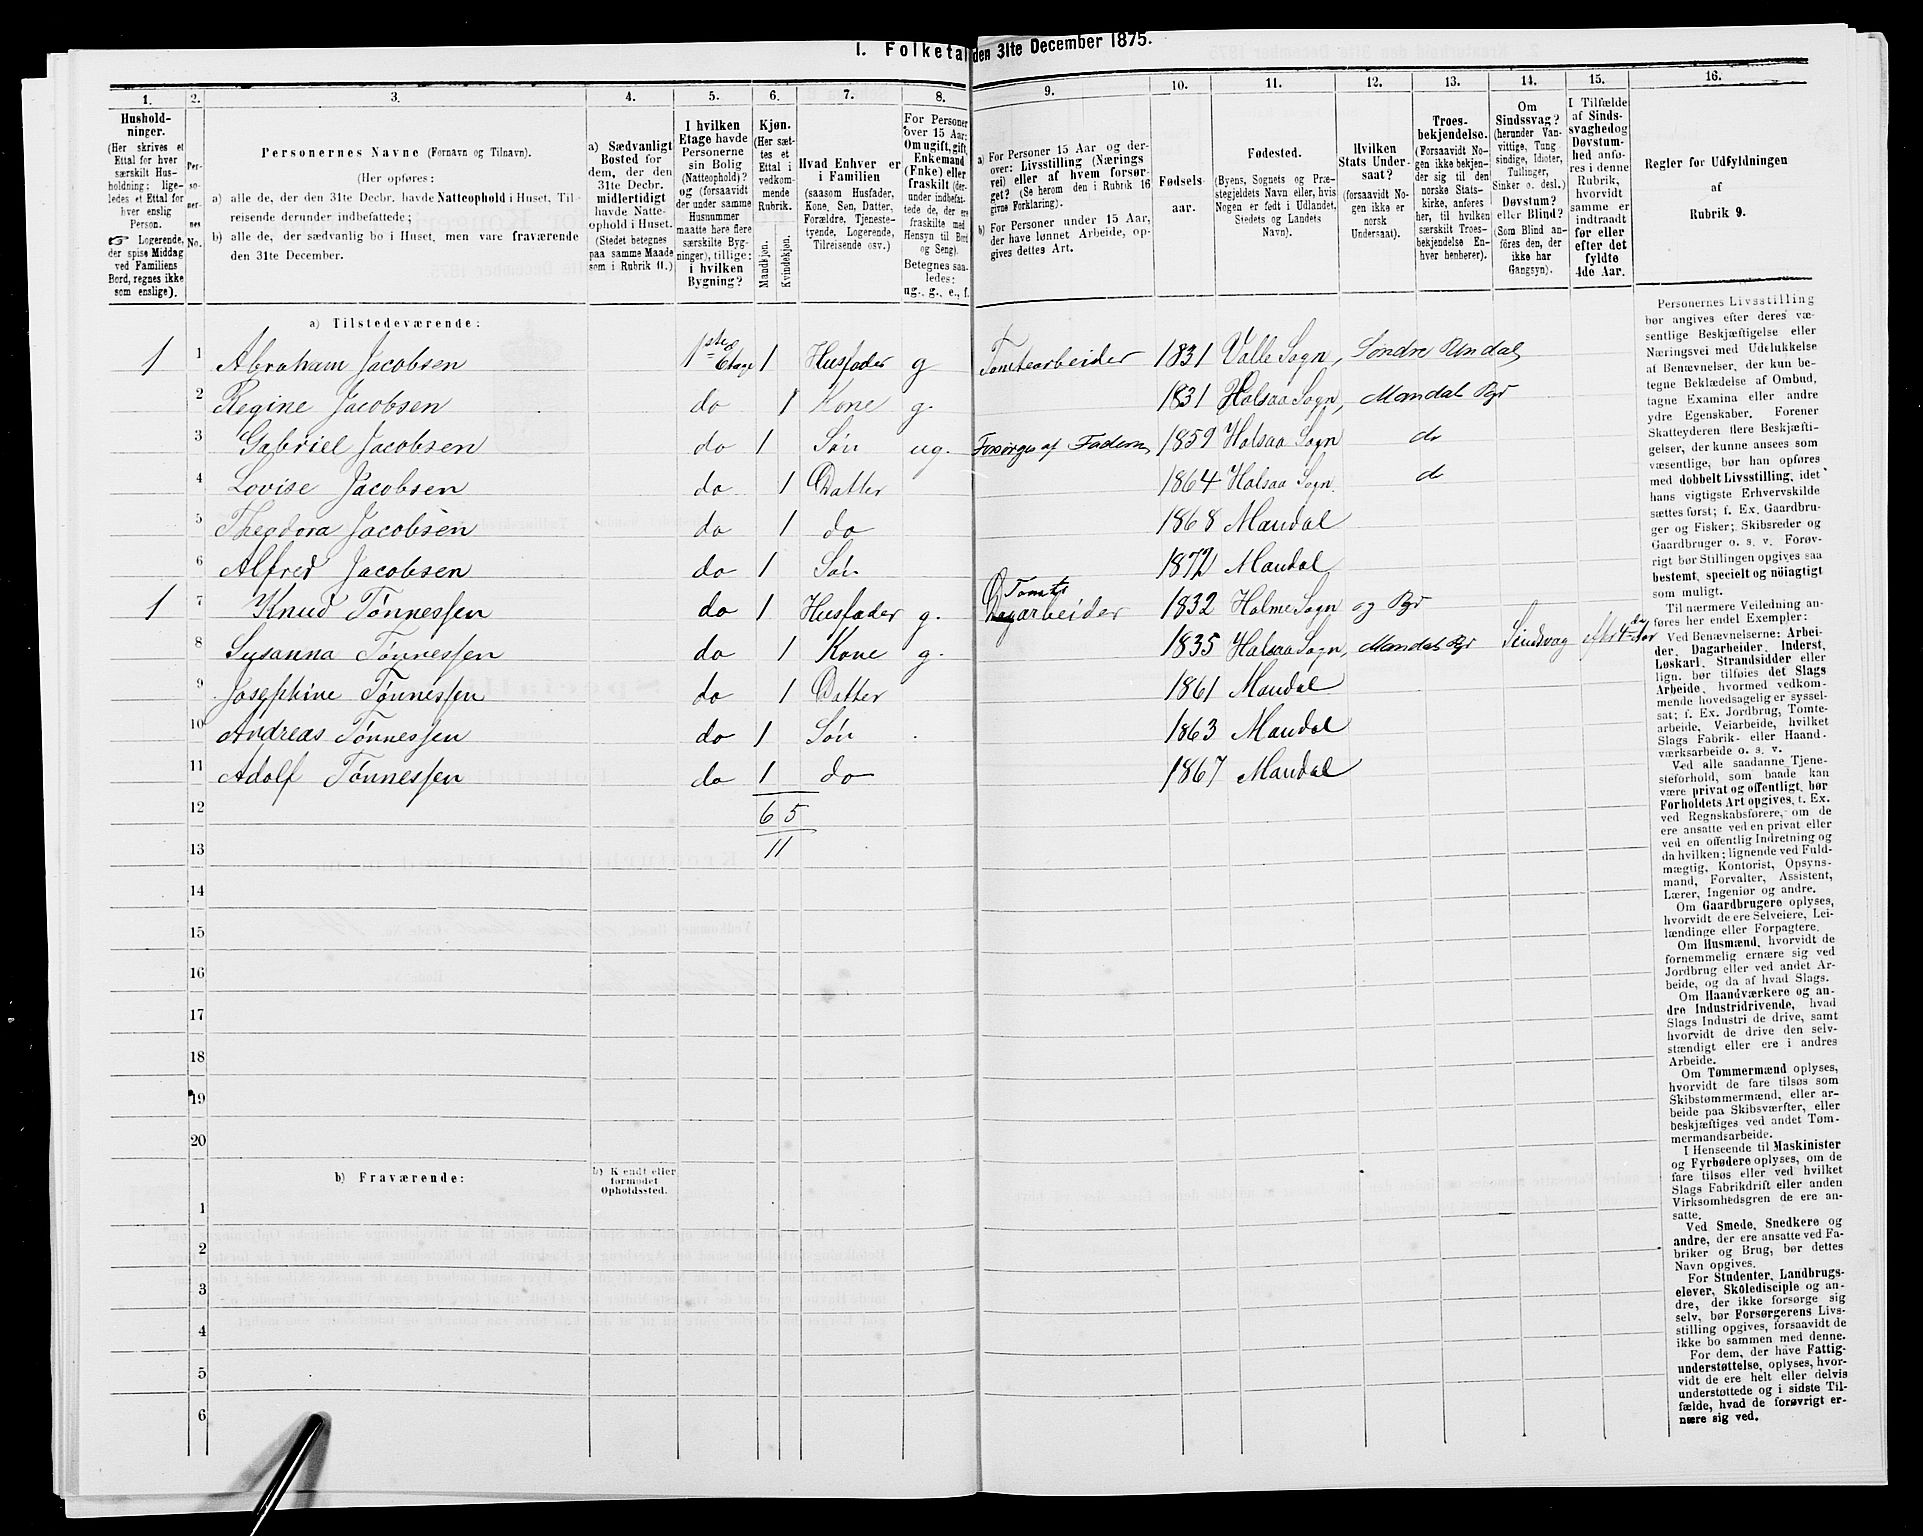 I. Folketal den 31te December 1875.
1. 2. 3. 4. 5. 6. 7. 8. 9. 10. 11. 12. 13. 14. 15. 16.
Hushold-
ninger.
(Her skrives et
Ettal for hver
særskilt Hus-
holdning: lige-
ledes et Ettal for
hver enslig
Person.
☞ Logerende,
der spise Middag
ved Familiens
Bord, regnes ikke
som enslige).
Per-
so-
ner-
nes
No.
Personernes Navne (Fornavn og Tilnavn).
(Her opføres:
a) alle de, der den 31te Decbr. havde Natteophold i Huset, Til-
reisende derunder indbefattede;
b) alle de, der sædvanlig bo i Huset, men vare fraværende
den 31te December.
a) Sædvanligt
Bosted for
dem, der den
31te Decbr.
midlertidigt
havde Natte-
ophold i Huset.
(Stedet betegnes
paa samme Maade
som i Rubrik 11.)
I hvilken
Etage havde
Personerne
sin Bolig
(Natteophold)?
og (forsaavidt
der under samme
Husnummer
maatte høre flere
særskilte Byg-
ninger), tillige:
i hvilken
Bygning?
Kjøn.
(Her sæt-
tes et
Ettal i
vedkom-
mende
Rubrik.
Mandkjøn.
Kvindekjøn.
Hvad Enhver er
i Familien
(saasom Husfader,
Kone, Søn, Datter,
Forældre, Tjeneste-
tyende, Logerende,
Tilreisende osv.)
For Personer
over 15 Aar:
Om ugift, gift,
Enkemand
(Enke) eller
fraskilt (der-
under indbefat-
tede de, der ere
fraskilte med
Hensyn til Bord
og Seng).
Betegnes saa-
ledes:
ug., g., e., f.
a) For Personer 15 Aar og der-
over: Livsstilling (Nærings
vei) eller af hvem forsør-
get? (Se herom den i Rubrik 16
givne Forklaring).
b) For Personer under 15 Aar,
der have lønnet Arbeide, op-
gives dettes Art.
Fødsels-
aar.
Fødested.
(Byens, Sognets og Præ-
stegjeldets Navn eller, hvis
Nogen er født i Udlandet,
Stedets og Landets
Navn).
Hvilken
Stats Under-
saat?
(forsaavidt No-
gen ikke er
norsk
Undersaat).
Troes-
bekjendelse.
(Forsaavidt No-
gen ikke bekjen-
der sig til den
norske Stats-
kirke, anføres
her, til hvilken
særskilt Troes-
bekjendelse En-
hver henhører).
Om
Sindssvag?
(herunder Van-
vittige, Tung
sindige, Idioter,
Tullinger,
Sinker o. desl.)
Døvstum?
eller Blind?
(Som Blind an-
føres den, der
ikke har
Gangsyn).
I Tilfælde
af Sinds-
svaghed og
Døvstum-
hed anfø-
res i denne
Rubrik,
hvorvidt
samme er
indtraadt
før eller
efter det
fyldte
4de Aar.
Regler for Udfyldningen
af
Rubrik 9.
a) Tilstedeværende:
1 1 Abraham Jacobsen 1ste Etage 1 Husfader g Tomtearbeider 1831 Valle Sogn, Søndre Undal
2 Regine Jacobsen do 1 Kone g. 1831 Halsaa Sogn, Mandal Bgr
3 Gabriel Jacobsen do 1 Søn ug. Forsørges af Faderen 1859 Halsaa Sogn do
4 Lovise Jacobsen do 1 Datter 1864 Halsaa Sogn. do
5 Theodora Jacobsen do 1 do 1868 Mandal
6 Alfred Jacobsen do 1 Søn 1872 Mandal
Tomte
1 7 Knud Tønnessen do 1 Husfader g. Dagarbeider 1832 Holme Sogn og Pgr
8 Susanna Tønnessen do 1 Kone g. 1835 Halsaa Sogn, Mandal Pgr Sindsvag efter 4de Aar
9 Josephine Tønnessen do 1 Datter 1861 Mandal
10 Andreas Tønnessen do 1 Søn 1863 Mandal
11 Adolf Tønnessen do 1 do 1867 Mandal
12 6 5
13 11
14
15
16
17
18
19
20
b) Fraværende:
b) Kjendt eller
formodet
Opholdssted.
1
2
3
4
5
6
Personernes Livsstilling
bør angives efter deres væ-
sentlige Beskjæftigelse eller
Næringsvei med Udelukkelse
af Benævnelser, der kun be-
tegne Beklædelse af Ombud,
tagne Examina eller andre
ydre Egenskaber. Forener
Skatteyderen flere Beskjæfti-
gelser, der kunne ansees som
væsentlige, bør han opføres
med dobbelt Livsstilling, idet
hans vigtigste Erhvervskilde
sættes først; f. Ex. Gaardbru-
ger og Fisker; Skibsreder og
Gaardbruger o. s. v. Forøv-
rigt bør Stillingen opgives saa
bestemt, specielt og nøiagtigt
som muligt.
Til nærmere Veiledning an-
føres her endel Exempler:
Ved Benævnelserne: Arbei-
der, Dagarbeider, Inderst,
Løskarl, Strandsidder eller
lign. bør tilføies det Slags
Arbeide, hvormed vedkom-
mende hovedsagelig er syssel-
sat; f. Ex. Jordbrug, Tomte-
arbeide, Veiarbeide, hvilket
Slags Fabrik- eller Haand-
værksarbeide o. s. v.
Ved alle saadanne Tjene-
steforhold, som baade kan
være privat og offentligt, bør
Forholdets Art opgives, t. Ex.
ved Regnskabsførere, om de
ere ansatte ved en privat eller
en offentlig Indretning og
da hvilken; lignende ved Fuld-
mægtig, Kontorist, Opsyns-
mand, Forvalter, Assistent,
Lærer, Ingeniør og andre.
Om Gaardbrugere oplyses,
hvorvidt de ere Selveiere, Lei-
lændinge eller Forpagtere.
Om Husmænd, hvorvidt de
fornemmelig ernære sig ved
Jordbrug eller ved andet Ar-
beide, og da af hvad Slags.
Om Haandværkere og an-
dre Industridrivende, hvad
Slags Industri de drive, samt
hvorvidt de drive den selv-
stændigt eller ere i andres
Arbeide.
Om Tømmermænd oplyses,
hvorvidt de fare tilsøs som
Skibstømmermænd, eller ar-
beide paa Skibsværfter, eller
beskjæftiges ved andet Tøm-
mermandsarbeide.
I Henseende til Maskinister
og Fyrbødere oplyses, om de
fare tilsøs eller ved hvilket
Slags Fabrikdrift eller anden
Virksomhedsgren de ere an-
satte.
Ved Smede, Snedkere og
andre, der ere ansatte ved Fa-
briker og Brug, bør dettes
Navn opgives.
For Studenter, Landbrugs-
elever, Skoledisciple og an-
dre, der ikke forsørge sig
selv, bør Forsørgerens Livs-
stilling opgives, forsaavidt de
ikke bo sammen med denne.
For dem, der have Fattig-
understøttelse, oplyses, hvor-
vidt de ere helt eller delvis
understøttede og i sidste Til-
fælde, hvad de forøvrigt er-
nære sig ved.